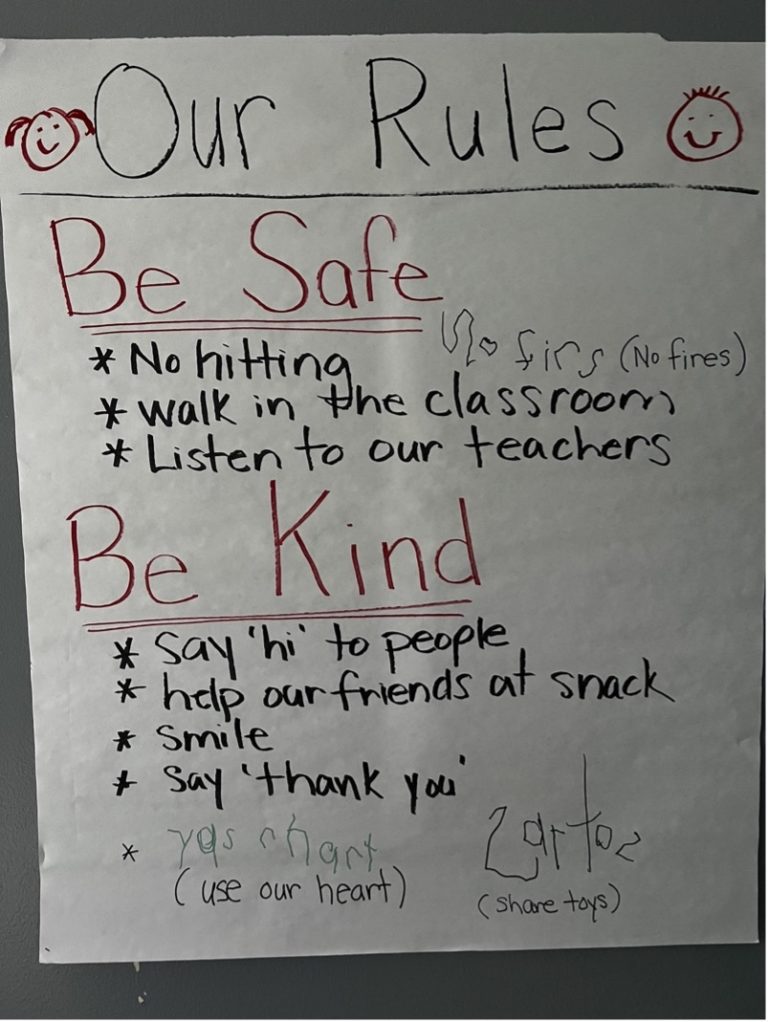 Our Rules
Be Safe
* No hitting
No firs (No fires)
* walk in the classroom
* Listen to our teachers
Be Kind
* say 'hi' to people
* help our friends at snack
* smile
* say 'thank you'
* yas chart
(use our heart)
(share toys)